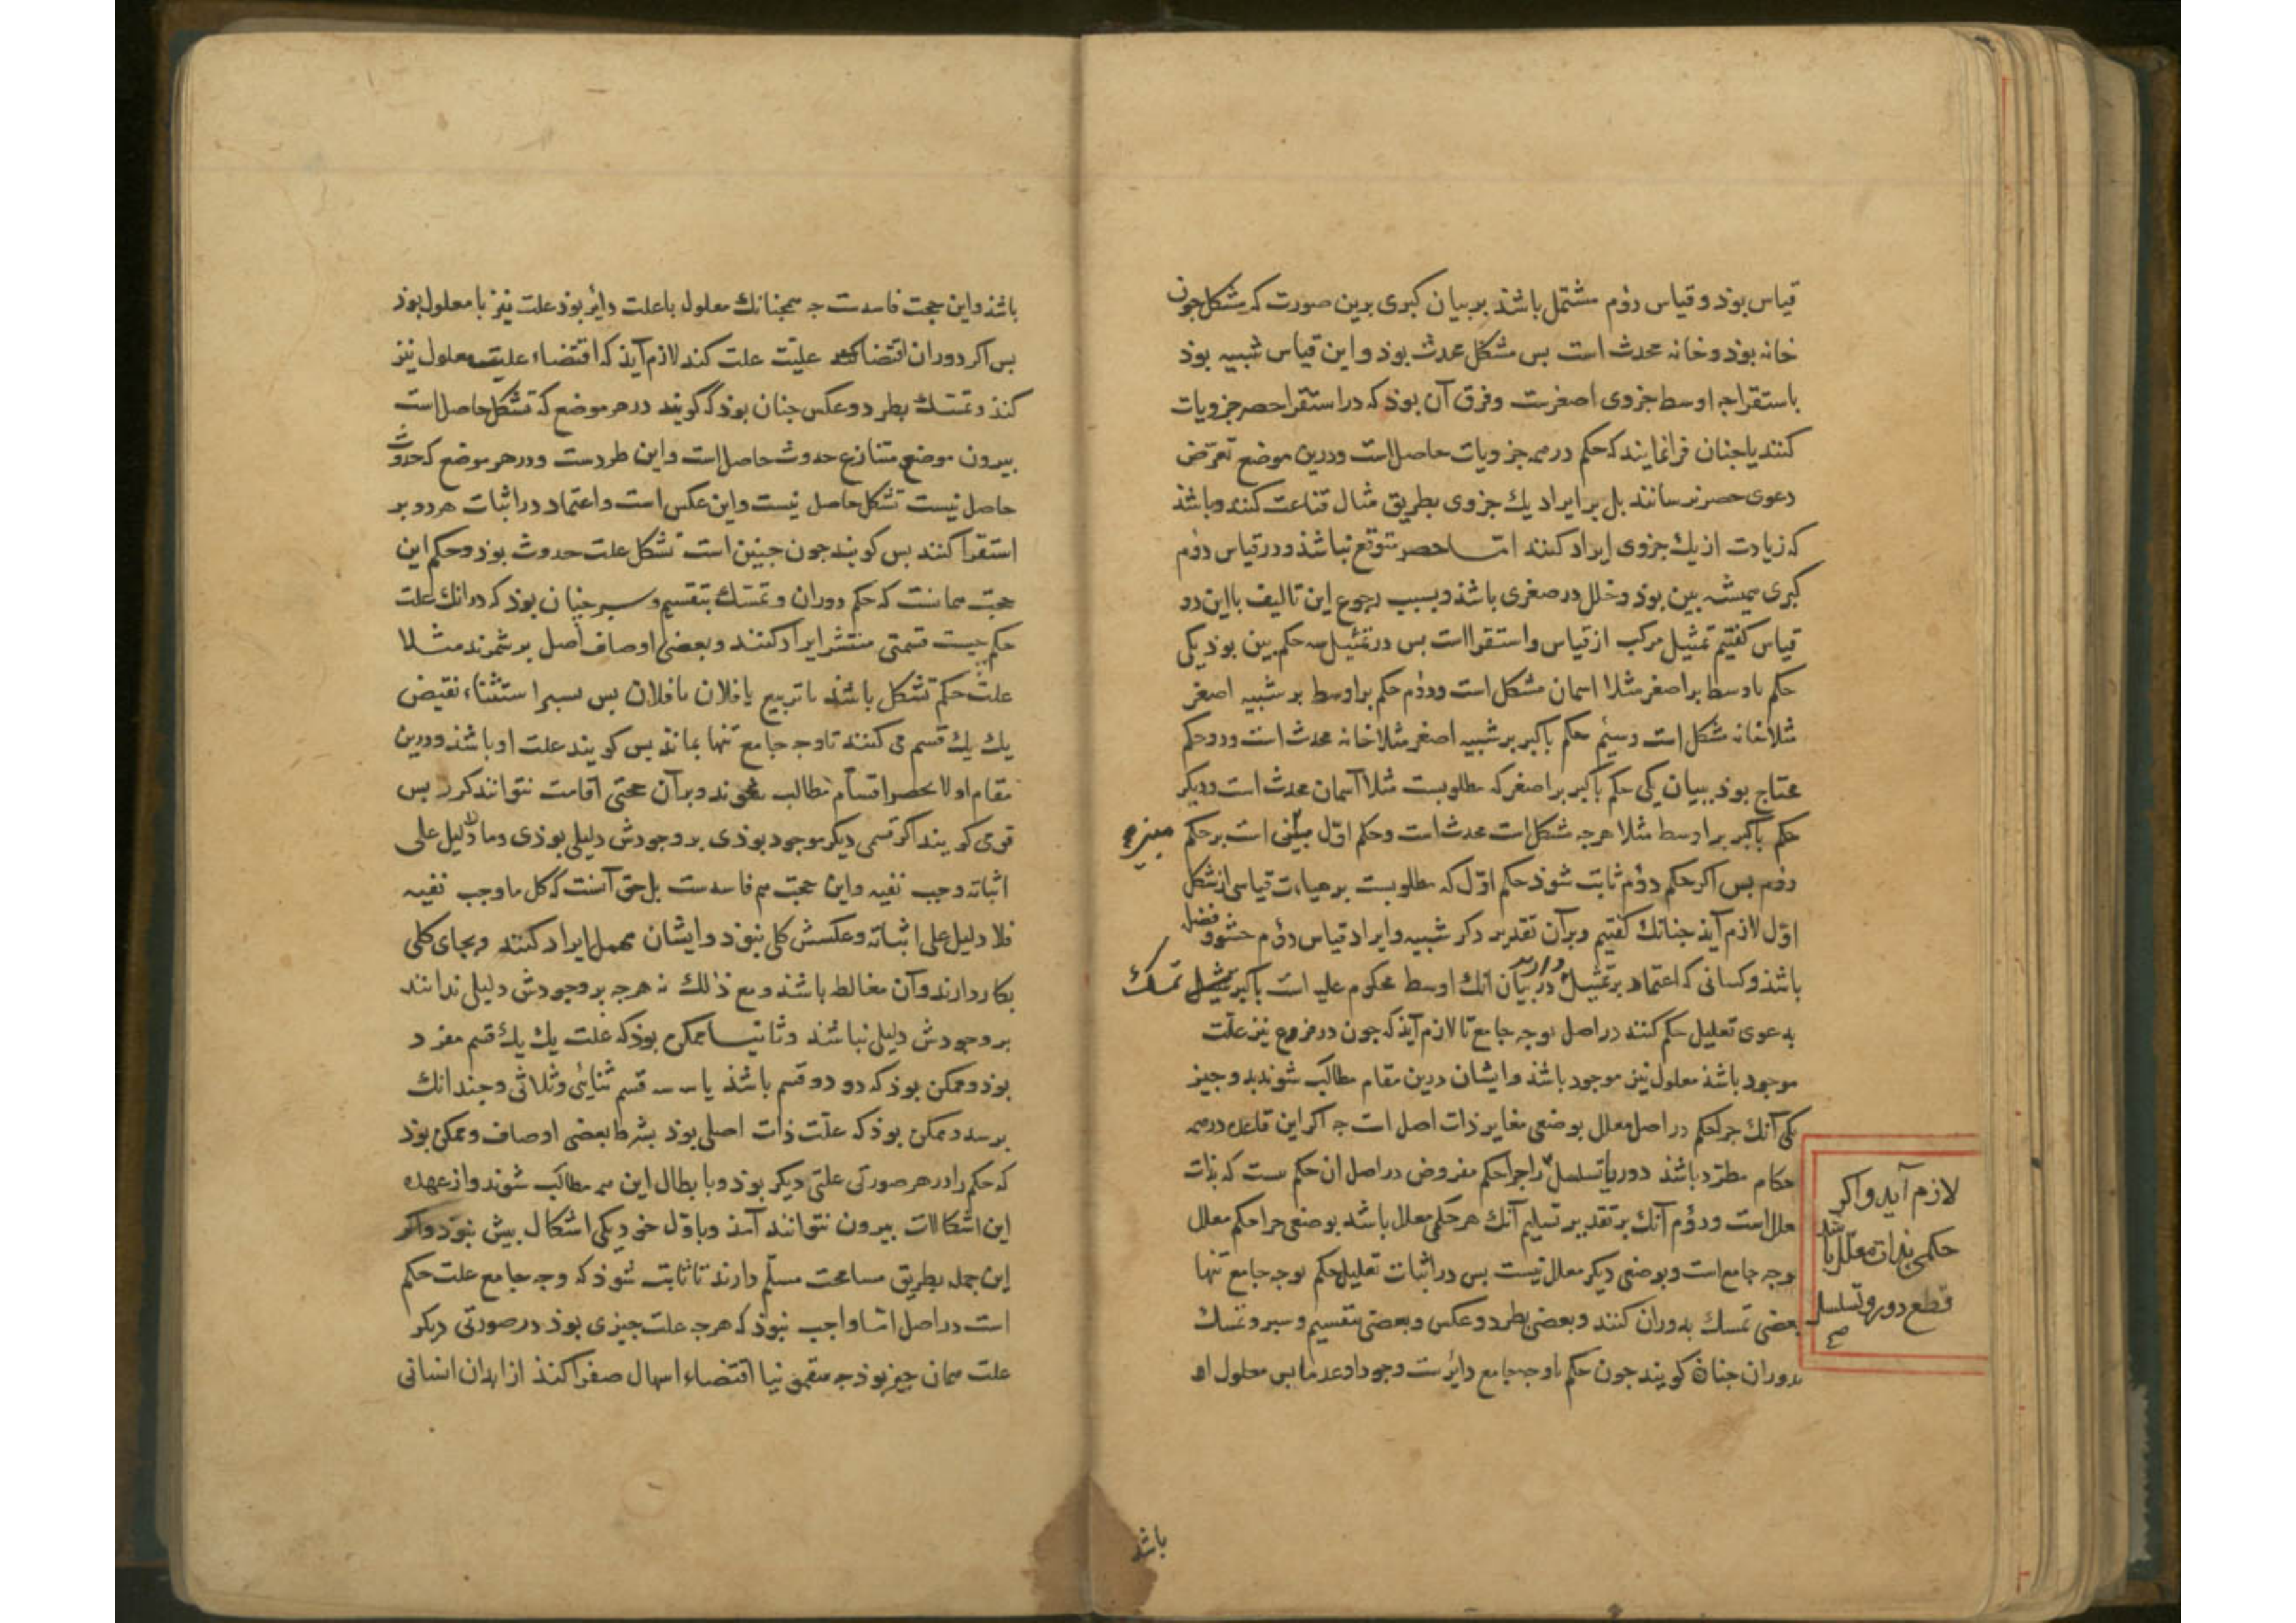 قیاس بوذ و قیاس دؤم مشتمل باشذ بر بیان کبری برین صورت که مشکل جون
خانه بوذ و خانه محدث است بس مشکل محدث بوذ و این قیاس شبیه بوذ
باستقرا جه اوسط جزوی اصغرست وفرق آن بوذ که در استقرا حصر جزویات
کنند یا جنان فرا نمایند که حکم در همه جزویات حاصل است ودرین موضع تعرّض
دعوی حصر نرسانند بل بر ایراد یك جزوی بطریق مثال قناعت کنند وباشذ
که زیادت از یك جزوی ایراد کنند امّا حصر متوقع نباشذ ودر قیاس دؤم
کبری همیشه بین بوذ وخلل در صغری باشذ وبسبب رجوع این تالیف بااین دو
قیاس کفتیم تمثیل مرکب از قیاس واستقراست بس در تمثیل سه حکم بین بوذ یکی
حکم باوسط بر اصغر مثلا اسمان مشکل است ودؤم حکم براوسط بر شبیه اصغر
مثلا خانه مشکل است وسیُم حکم باکبر بر شبیه اصغر مثلا خانه محدث است ودو حکم
محتاج بوذ ببیان یکی حکم باکبر بر اصغر که مطلوبست مثلا آسمان محدث است ودیکر
حکم باکبر بر اوسط مثلا هرجه مشکل است محدث است وحکم اوّل مبنی است بر حکم
دؤم بس اکر حکم دؤم ثابت شوذ حکم اوّل که مطلوبست بر هیات قیاسی از شکل
اوّل لازم آیذ جنانك کفتیم وبرآن تقدیر ذکر شبیه وایراد قیاس دؤم حشو و فضل
باشذ وکسانی که اعتماد بر تمثیل دارند در بیان انك اوسط محکوم علیه است باکبر تمسك
بدعوی تعلیل حکم کنند در اصل بوجه جامع تا لازم آیذ که جون در فرع نیز علّت
موجود باشذ معلول نیز موجود باشذ وایشان درین مقام مطالب شوند بدو جیز
یکی آنك جرا حکم در اصل معلل بوضعی مغایر ذات اصل است جه اکر این قاعده در همه
حکام مطرّد باشذ دور یا تسلسل راجرا حکم مفروض در اصل ان حکم ست که بذات
معلل است ودؤم آنك بر تقدیر تسلیم آنك هر حکمی معلل باشد بوضعی جرا حکم معلل
بوجه جامع است وبوضعی دیکر معلل نیست بس در اثبات تعلیل حکم بوجه جامع تنها
بعضی تمسك بدوران کنند وبعضی بطرد وعکس وبعضی بتقسیم وسبر وتمسك
بدوران جنان کویند جون حکم باوجه جامع دایرست وجودا وعدما بس معلول او
لازم آید واکر
حکمی بذات معلل باشد
قطع دور وتسلسل
صح
باشد
باشذ واین حجت فاسدست جه همجنانك معلول باعلت دایر بوذ علت نیز با معلول بوذ
بس اکر دوران اقتضا علیّت علت کند لازم آیذ که اقتضاء علیت معلول نیز
کنذ وتمسّك بطرد وعکس جنان بوذ که کویند در هر موضع که تشکل حاصل است
بیرون موضع متنازع حدوث حاصل است واین طردست ودر هر موضع که حدوث
حاصل نیست تشکل حاصل نیست واین عکس است واعتماد در اثبات هر دو بر
استقرا کنند بس کویند جون جنین است تشکل علت حدوث بوذ وحکم این
حجت همانست که حکم دوران وتمسّك بتقسیم وسبر جنان بوذ که در آنك علت
حکم جیست قسمتی منتشر ایراد کنند وبعضی اوصاف اصل بر شمرند مثلا
علّت حکم تشکل باشذ یا تربیع یا فلان یا فلان بس بسبر استثناء نقیض
یك یك قسم می کنند تا وجه جامع تنها بماند بس کویند علت او باشذ ودرین
مقام اولا بحصر اقسام مطالب شوند وبرآن حجتی اقامت نتوانند کرد بس
قومی کویند اکر قسمی دیکر موجود بوذی بر وجودش دلیلی بوذی وما لا دلیل علی
اثباته وجب نفیه واین حجت هم فاسدست بل حق آنست که کل ما وجب نفیه
فلا دلیل علی اثباته وعکسش کلی نبوذ وایشان مهمل ایراد کنند وبجای کلی
بکار دارند وآن مغالط باشذ ومع ذلك نه هرجه بر وجودش دلیل ندانند
بر وجودش دلیل نباشذ وثانیا ممکن بوذ که علت یك یك قسم مفرد
بوذ وممکن بوذ که دو دو قسم باشذ یا سه سه قسم ثنایی وثلاثی وجندانك
برسد وممکن بوذ که علّت ذات اصلی بوذ بشرط بعضی اوصاف وممکن بوذ
که حکم را در هر صورتی علتی دیکر بوذ وبا بطال این همه مطالب شوند واز عهده
این اشکالات بیرون نتوانند آمذ وباوّل خود یکی اشکال بیش نبوذ واکر
این جمله بطریق مسامحت مسلّم دارند تا ثابت شوذ که وجه جامع علت حکم
است در اصل امّا واجب نبوذ که هرجه علت جیزی بوذ در صورتی دیکر
علت همان جیز بوذ جه سقمونیا اقتضاء اسهال صفرا کنذ از ابدان انسانی